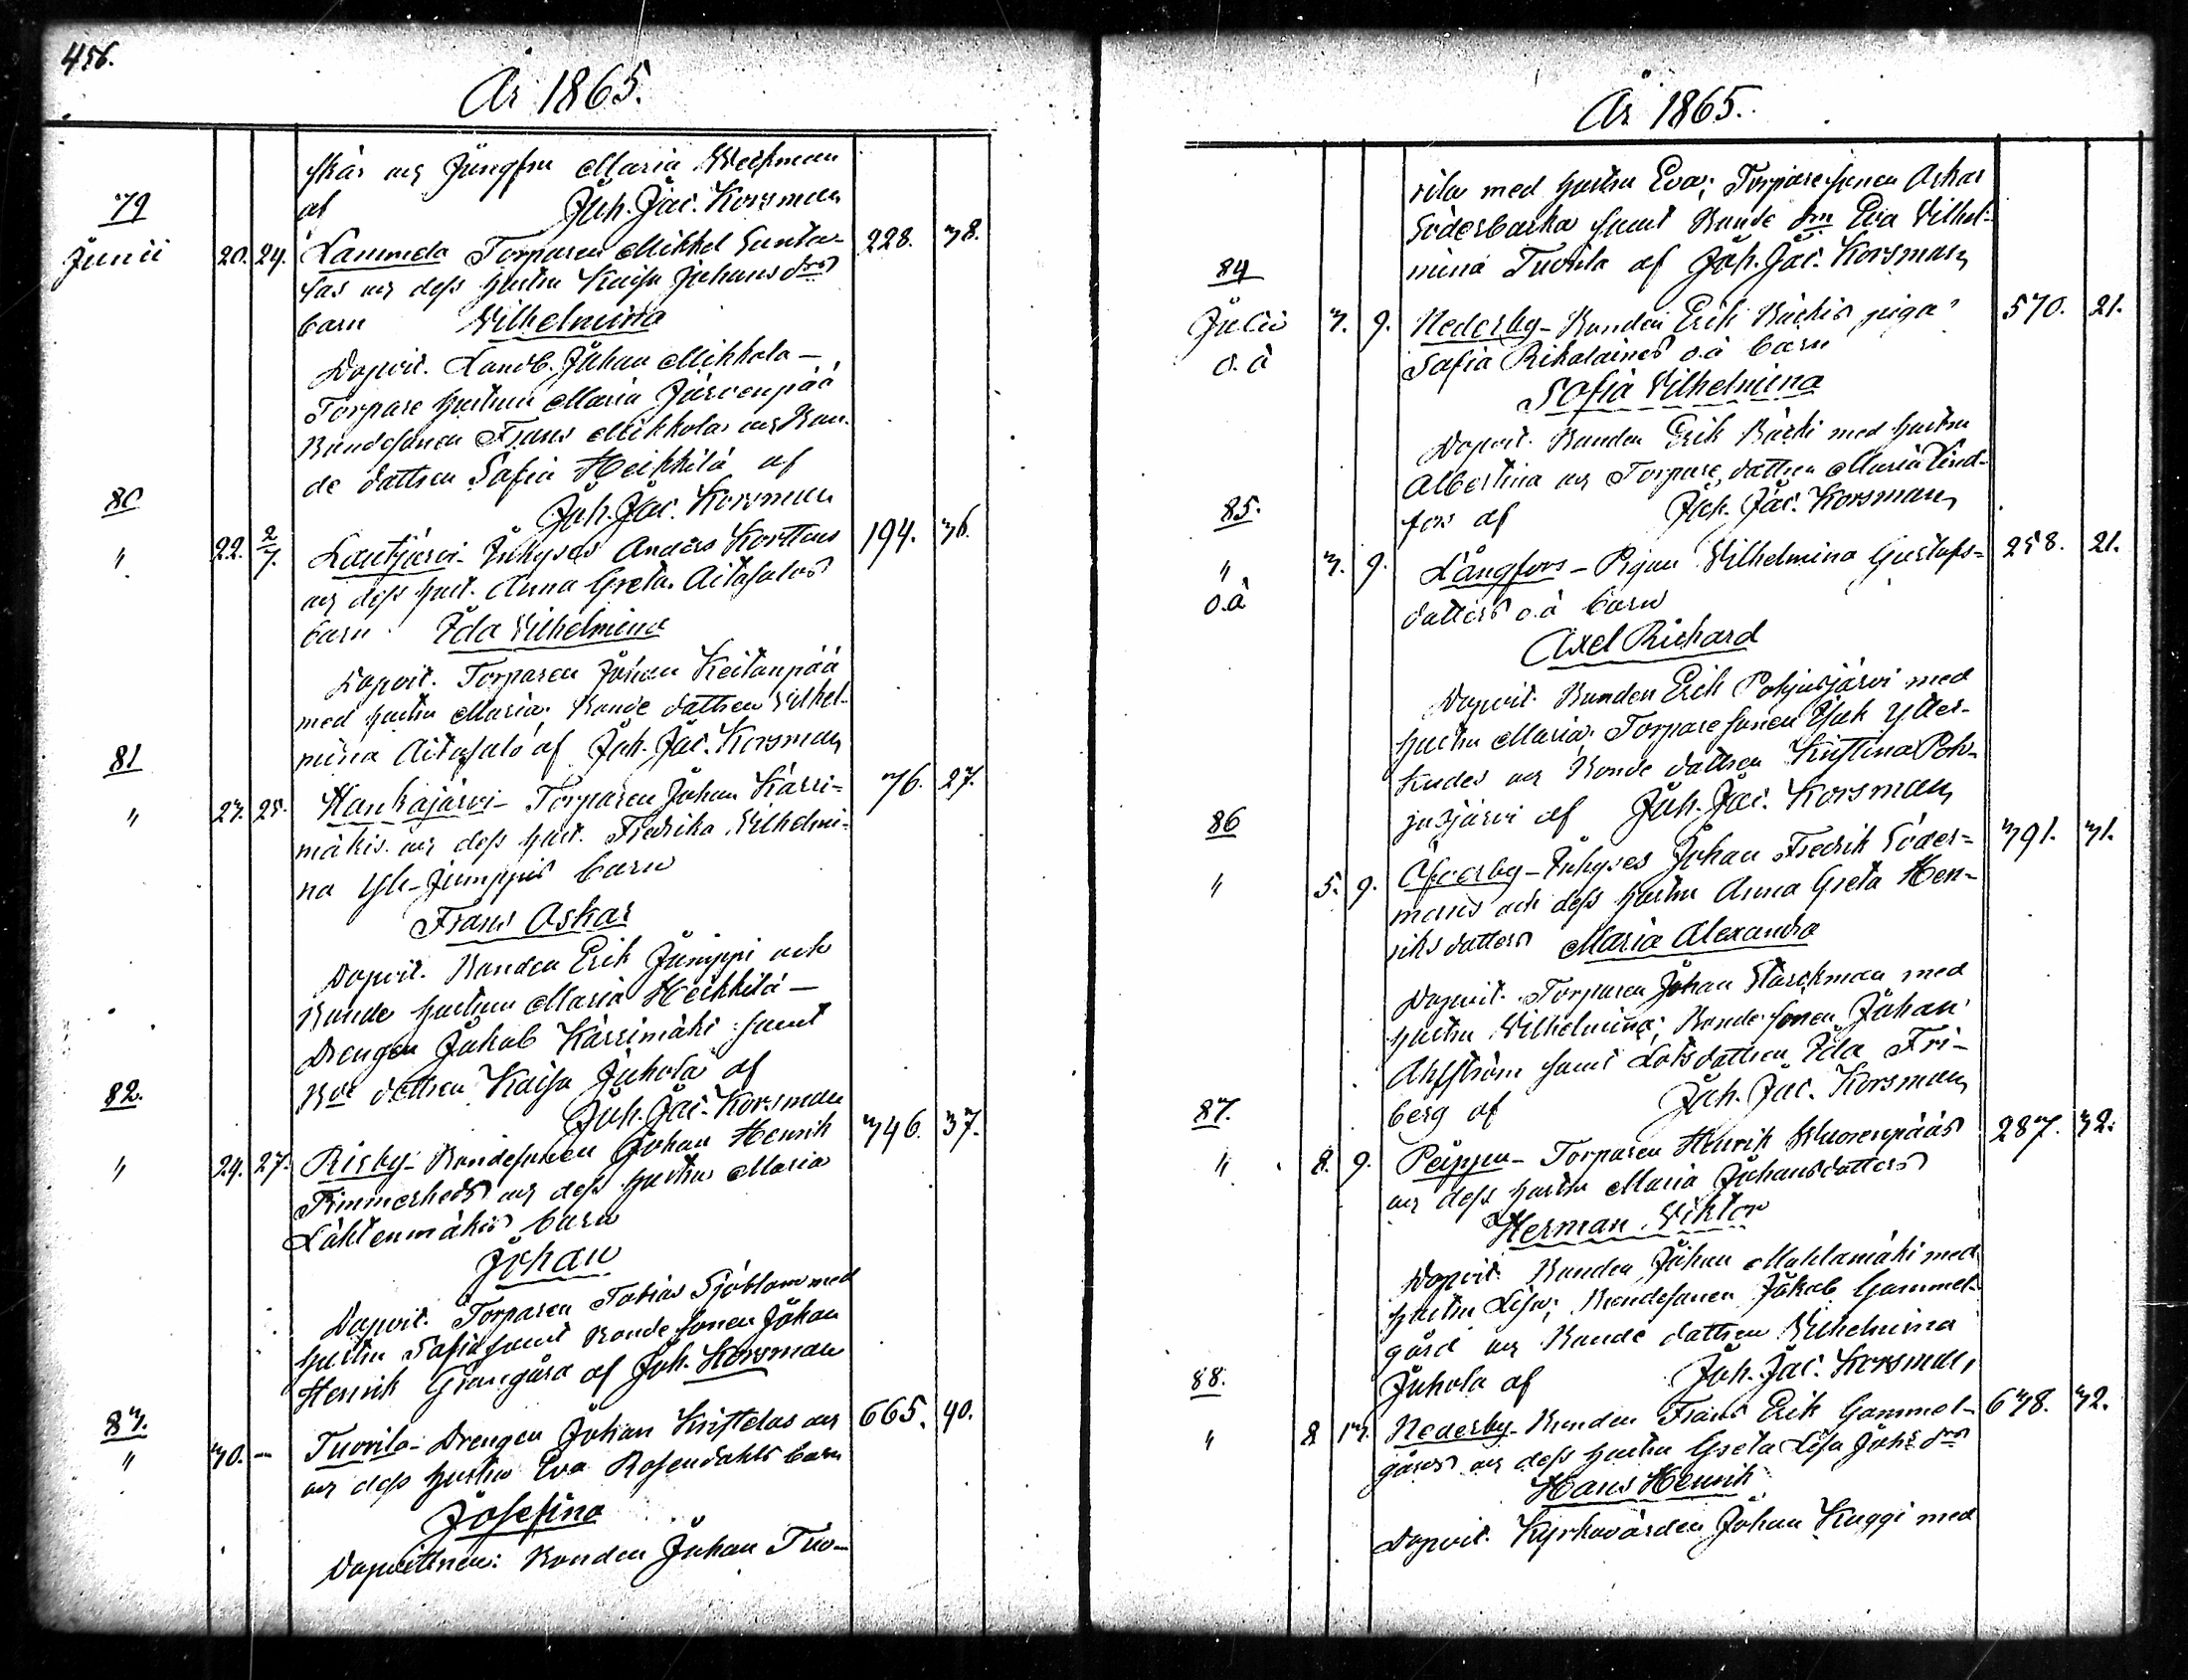 456.
År 1865.
skär och Jungfru Maria Weckman
79 af Joh. Jac. Korsman
Junii 20. 24. Lammela Torparen Mikkel Sunta- 228. 38.
las och dess hustru Kajsa Johans drs
barn Wilhelmina
Dopvit. Landb. Johan Mikkola –
Torpare hustrun Maria Järvenpää
Bondesonen Frans Mikkola och Bon-
de dottren Sofia Heikkilä af
80 Joh. Jac. Korsman
" 22. 2/7. Lautjärvi- Inhyses Anders Korttens 194. 36.
och dess hust. Anna Greta Aitasalos
barn Ida Vilhelmina
Dopvit. Torparen Johan Keitanpää
med hustru Maria; Bonde dottren Vilhel-
mina Aitasalo af Joh. Jac. Korsman
81
" 23. 25. Kankajärvi- Torparen Johan Kärri- 76. 27.
mäkis och dess hust. Fredrika Vilhelmi-
na Yli-Jumppis barn
Frans Oskar
Dopvit. Bonden Erik Jumppi och
Bonde hustrun Maria Heikkilä –
Drengen Jakob Kärrimäki samt
Bde dottren Kajsa Juhola af
82. Joh. Jac. Korsman
" 24. 27. Risby- Bondesonen Johan Henrik 346. 37.
Timmerheds och dess hustru Maria
Lähtenmäkis barn
Johan
Dopvit. Torparen Tobias Sjöblom med
hustru Sofia samt Bonde sonen Johan
Henrik Grangård af Joh. Korsman
83.
" 30. – Tuorila- Drengen Johan Kristolas 665. 40.
och dess hustru Eva Rosendahls barn
Josefina
Dopvittnen: Bonden Johan Tuo-
År 1865.
rila med hustru Eva; Torparesonen Oskar
Söderbacka samt Bonde dtn Eva Vilhel-
84 mina Tuorila af Joh. Jac. Korsman
Julii 3. 9. Nederby- Bonden Erik Bäckis piga 570. 21.
o.ä Sofia Rikalaines o.ä barn
Sofia Vilhelmina
Dopvit. Bonden Erik Bäcki med hustru
Albertina och Torpare dottren Maria Lind-
85. fors af Joh. Jac. Korsman
" 3. 9. Långfors – Pigan Vilhelmina Gustafs- 258. 21.
o.ä dotters o.ä barn
Axel Richard
Dopvit. Bonden Erik Pohjusjärvi med
hustru Maria; Torpare sonen Isak Ytter-
kudes och Bonde dottren Kristina Poh-
jusjärvi af Joh. Jac. Korsman
86
" 5. 9. Öfverby- Inhyses Johan Fredrik Söder- 391. 31.
mans och dess hustru Anna Greta Hen-
riks dotters Maria Alexandra
Dopvit. Torparen Johan Starckman med
hustru Vilhelmina; Bonde sonen Johan
Ahlström samt Lotsdottren Ida Fri-
berg af Joh. Jac. Korsman
87.
" 8. 9. Peippu- Torparen Henrik Wuorenpääs 287. 32.
och dess hustru Maria Johansdotters
Herman Viktor
Dopvit. Bonden Johan Mahlamäki med
hustru Lisa; Bondesonen Jakob Gammel-
gård och Bonde dottren Vilhelmina
88. Juhola af Joh. Jac. Korsman,
" 8 13. Nederby- Bonden Frans Erik Gammel- 638. 32.
gårds och dess hustru Greta Lisa Johs drs
Hans Henrik
Dopvit. Kyrkovärden Johan Kuggi med